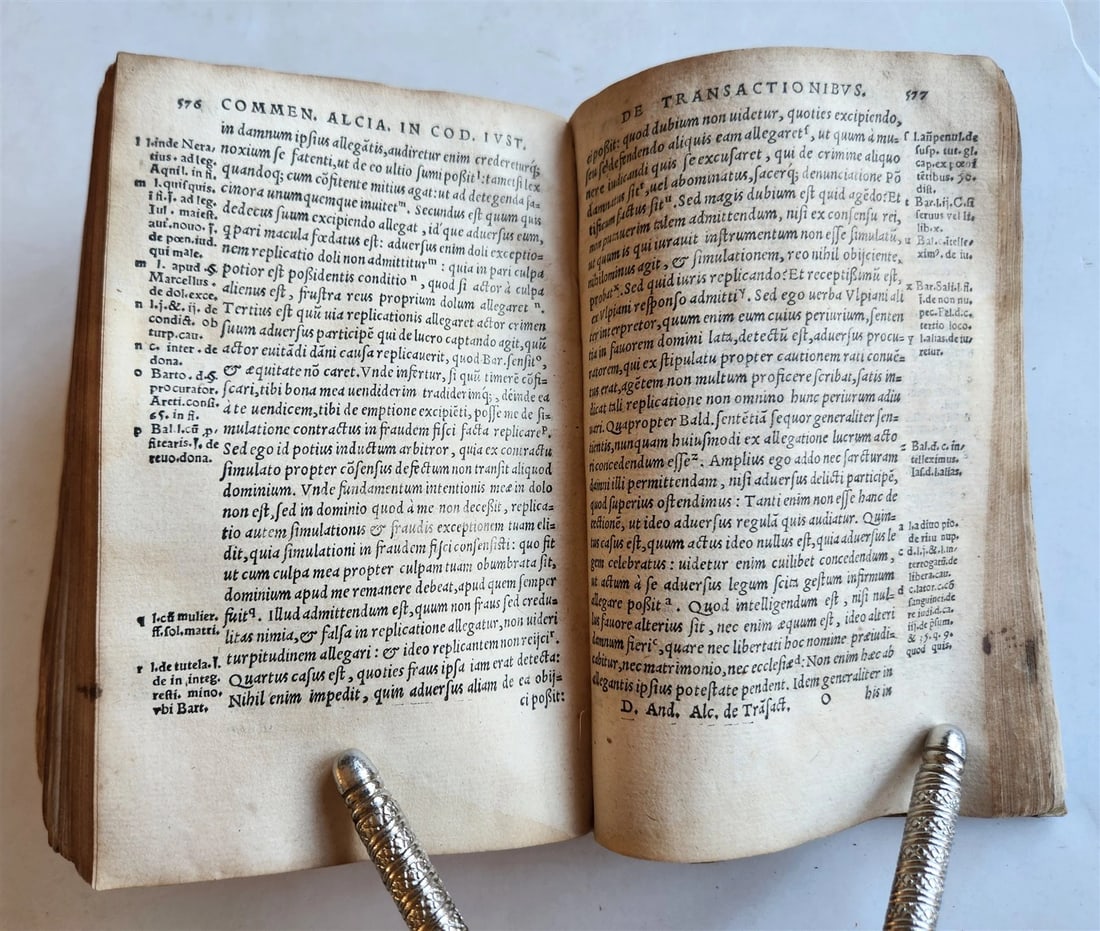 576 COMMEN. ALCIA. IN COD. IVST.
in damnum ipsius allegãtis, audiretur enim credereturq́;
noxium se fatenti, ut de eo ultio sumi poßit¹: tametsi lex
quandoq; cum cõfitente mitius agat: ut ad detegenda fa-
cinora unumquemque inuitetᵐ. Secundus est quum quis
dedecus suum excipiendo allegat, id'que aduersus eum,
q pari macula fœdatus est: aduersus enim doli exceptio-
nem replicatio doli non admittiturᵐ: quia in pari culpa
potior est poßidentis conditioⁿ, quod si actor à culpa
alienus est, frustra reus proprium dolum allegaretⁿ.
Tertius est quũ uia replicationis allegaret actor crimen
suum aduersus participẽ qui de lucro captando agit, quũ
actor euitãdi dãni causa replicauerit, quod Bar. sensitᵒ,
& æquitate nõ caret. Vnde infertur, si quũ timerẽ cõfi-
scari, tibi bona mea uendiderim tradiderimq;, deinde ea
à te uendicem, tibi de emptione excipiẽti, posse me de si-
mulatione contractus in fraudem fisci facta replicareᵖ.
Sed ego id potius inductum arbitror, quia ex contractu
simulato propter cõsensus defectum non transit aliquod
dominium. Vnde fundamentum intentionis meæ in dolo
non est, sed in dominio quod à me non deceßit, replica-
tio autem simulationis & fraudis exceptionem tuam eli-
dit, quia simulationi in fraudem fisci consensisti: quo fit
ut cum culpa mea propter culpam tuam obumbrata sit,
dominium apud me remanere debeat, apud quem semper
fuit𐞥. Illud admittendum est, quum non fraus sed credu-
litas nimia, & falsa in replicatione allegatur, non uideri
turpitudinem allegari: & ideo replicantem non reijciʳ.
Quartus casus est, quoties fraus ipsa iam erat detecta:
Nihil enim impedit, quin aduersus aliam de ea obij-
ci poßit:
l l.inde Nera,
tius. ad leg.
Aquil. in fi.
m l. quisquis.
§ fi. ff. ad leg.
Iul. maiest.
aut. nouo. ff.
de pœn. iud.
qui male.
m l. apud. §.
Marcellus.
de dol. exce.
n l.j. &. ij. de
condict. ob
turp. cau.
n c. inter. de
dona.
o Barto. d. §.
procurator.
Areti. consi.
65. in fi.
p Bal. l. cũ .p.
fitearis. ff. de
reuo. dona.
q l. cũ mulier.
ff. sol. matri.
r l. de tutela. ff.
de in integ.
resti. mino.
vbi Bart.
DE TRANSACTIONIBVS. 577
ci poßit: quod dubium non uidetur, quoties excipiendo,
seu se defendendo aliquis eam allegaretᶠ, ut quum à mu-
nere iudicandi quis se excusaret, qui de crimine aliquo
damnatus sitᵗ, uel abominatus, sacerq; denunciatione Põ
tificum factus sitᵘ. Sed magis dubium est quid agẽdo: Et
non putauerim talem admittendum, nisi ex consensu rei,
ut quum is qui iurauit instrumentum non esse simulatũ,
nihilominus agit, & simulationem, reo nihil obijciente,
probatˣ. Sed quid iuris replicando? Et receptißimũ est,
ex Vlpiani responso admittiʸ. Sed ego uerba Vlpiani ali
ter interpretor, quum enim eum cuius periurium, senten
tia in fauorem domini lata, detectũ est, aduersus procu-
ratorem, qui ex stipulatu propter cautionem rati conuẽ-
tus erat, agẽtem non multum proficere scribat, satis in-
dicat tali replicatione non omnino hunc periurum adiu
uari. Quapropter Bald. sentẽtiã sequor generaliter sen-
tientis, nunquam huiusmodi ex allegatione lucrum acto
ri concedendum esseᶻ. Amplius ego addo nec sarcturam
damni illi permittendam, nisi aduersus delicti participẽ,
quod superius ostendimus: Tanti enim non esse hanc de
rectionẽ, ut ideo aduersus regulã quis audiatur. Quin-
tus casus est, quum actus ideo nullus est, quia aduersus le
gem celebratus: uidetur enim cuilibet concedendum,
ut actum à se aduersus legum scita gestum infirmum
allegare poßitᵃ. Quod intelligendum est, nisi nul-
lus fauore alterius sit, nec enim æquum est, ideo alteri
damnum fieriᶜ, quare nec libertati hoc nomine præiudi-
cabitur, nec matrimonio, nec ecclesiæᵈ: Non enim hæc ab
allegantis ipsius potestate pendent. Idem generaliter in
D. And. Alc. de Trãsact. O his in
f l. añ penul. de
susp. tut. gl.
cap. ex pœni
tẽtibus. 50.
dist.
t Bar. l. ij. C. si
seruus vel li.
lib. x.
u Bal. c. itelle-
xim⁹. de iu.
x Bar. Sali. l. fi.
de non nu.
pec. Fel. d. c.
tertio loco.
y l. alias. de iu
reiur.
z Bal. d. c. in-
telleximus.
Ias. d. l. alias.
a l. a diuo pio.
de ritu nup.
c d. l. j. & l. in-
terrogatũ. de
libera. cau.
d c. lator. c. cõ
sanguinei. de
re iudi. d. ca.
iij. de psum.
& 35. q. 9.
quod quis.